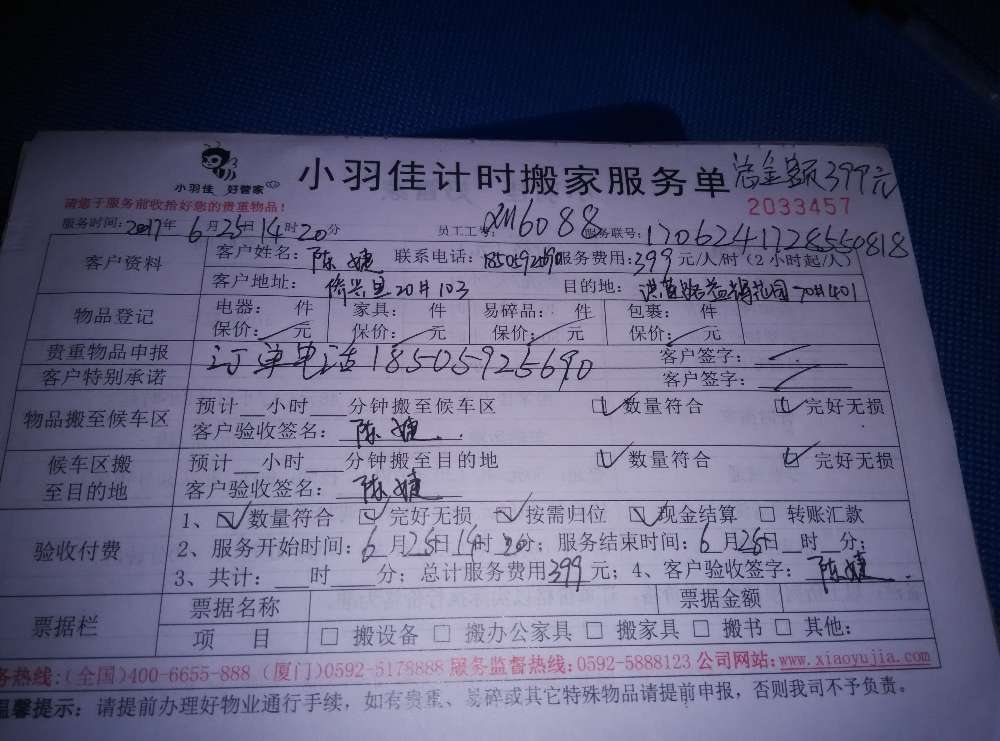 小羽佳 好管家
小羽佳计时搬家服务单 总金额399元
请您于服务前收拾好您的贵重物品!
2033457
服务时间:2017年6月25日14时20分 员工工号: XM6088 服务联号:1706241728550818
客户资料 客户姓名:陈婕 联系电话:18505925690 服务费用:399元/人/时(2小时起/人)
客户地址:侨兴里20#103 目的地: 花园70#401
物品登记 电器: 件 家具: 件 易碎品: 件 包裹: 件
保价: 元 保价: 元 保价: 元 保价: 元
贵重物品申报 订单电话18505925690 客户签字:
客户特别承诺 客户签字:
物品搬至候车区 预计__小时___分钟搬至候车区 ☑ 数量符合 ☑ 完好无损
客户验收签名:陈婕
候车区搬至目的地 预计__小时___分钟搬至目的地 ☑ 数量符合 ☑ 完好无损
客户验收签名:陈婕
验收付费 1、☑ 数量符合 ☑ 完好无损 ☑ 按需归位 ☑ 现金结算 □ 转账汇款
2、服务开始时间:6月25日14时20分;服务结束时间:6月25日__时__分;
3、共计:___时___分;总计服务费用399元;4、客户验收签字:陈婕
票据栏 票据名称 票据金额
项 目 □ 搬设备 □ 搬办公家具 □ 搬家具 □ 搬书 □ 其他:
务热线:(全国)400-6655-888 (厦门)0592-5178888 服务监督热线:0592-5888123 公司网站:www.xiaoyujia.com
温馨提示:请提前办理好物业通行手续,如有贵重、易碎或其它特殊物品请提前申报,否则我司不予负责。